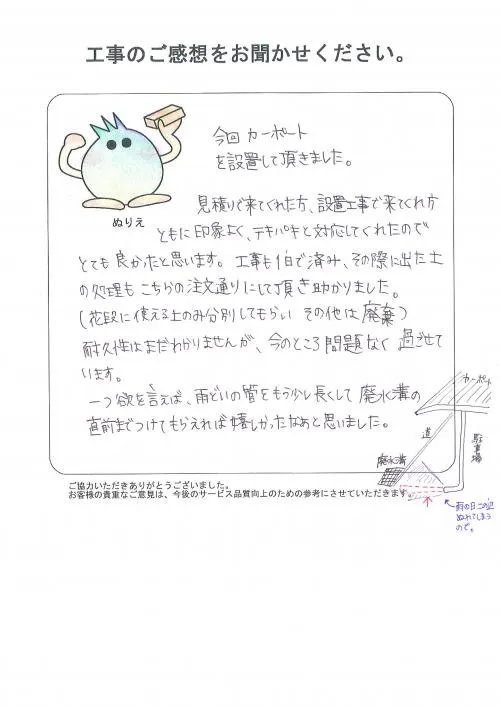 工事のご感想をお聞かせください。
今回 カーポート
を設置して頂きました。
ぬりえ
見積りで来てくれた方、設置工事で来てくれ方
ともに印象よく、テキパキと対応してくれたので
とても良かったと思います。 工事も1日で済み、その際に出た土
の処理も こちらの注文通りにして頂き助かりました。
(花段に使える土のみ分別してもらい その他は廃棄)
耐久性はまだわかりませんが、今のところ問題なく過ごせて
います。
一つ欲を言えば、雨どいの管をもう少し長くして 廃水溝の
直前までつけてもらえれば嬉しかったなぁと思いました。
カーポート
道
駐車場
廃水溝
雨の日この辺
ぬれてしまう
ので。
ご協力いただきありがとうございました。
お客様の貴重なご意見は、今後のサービス品質向上のための参考にさせていただきます。